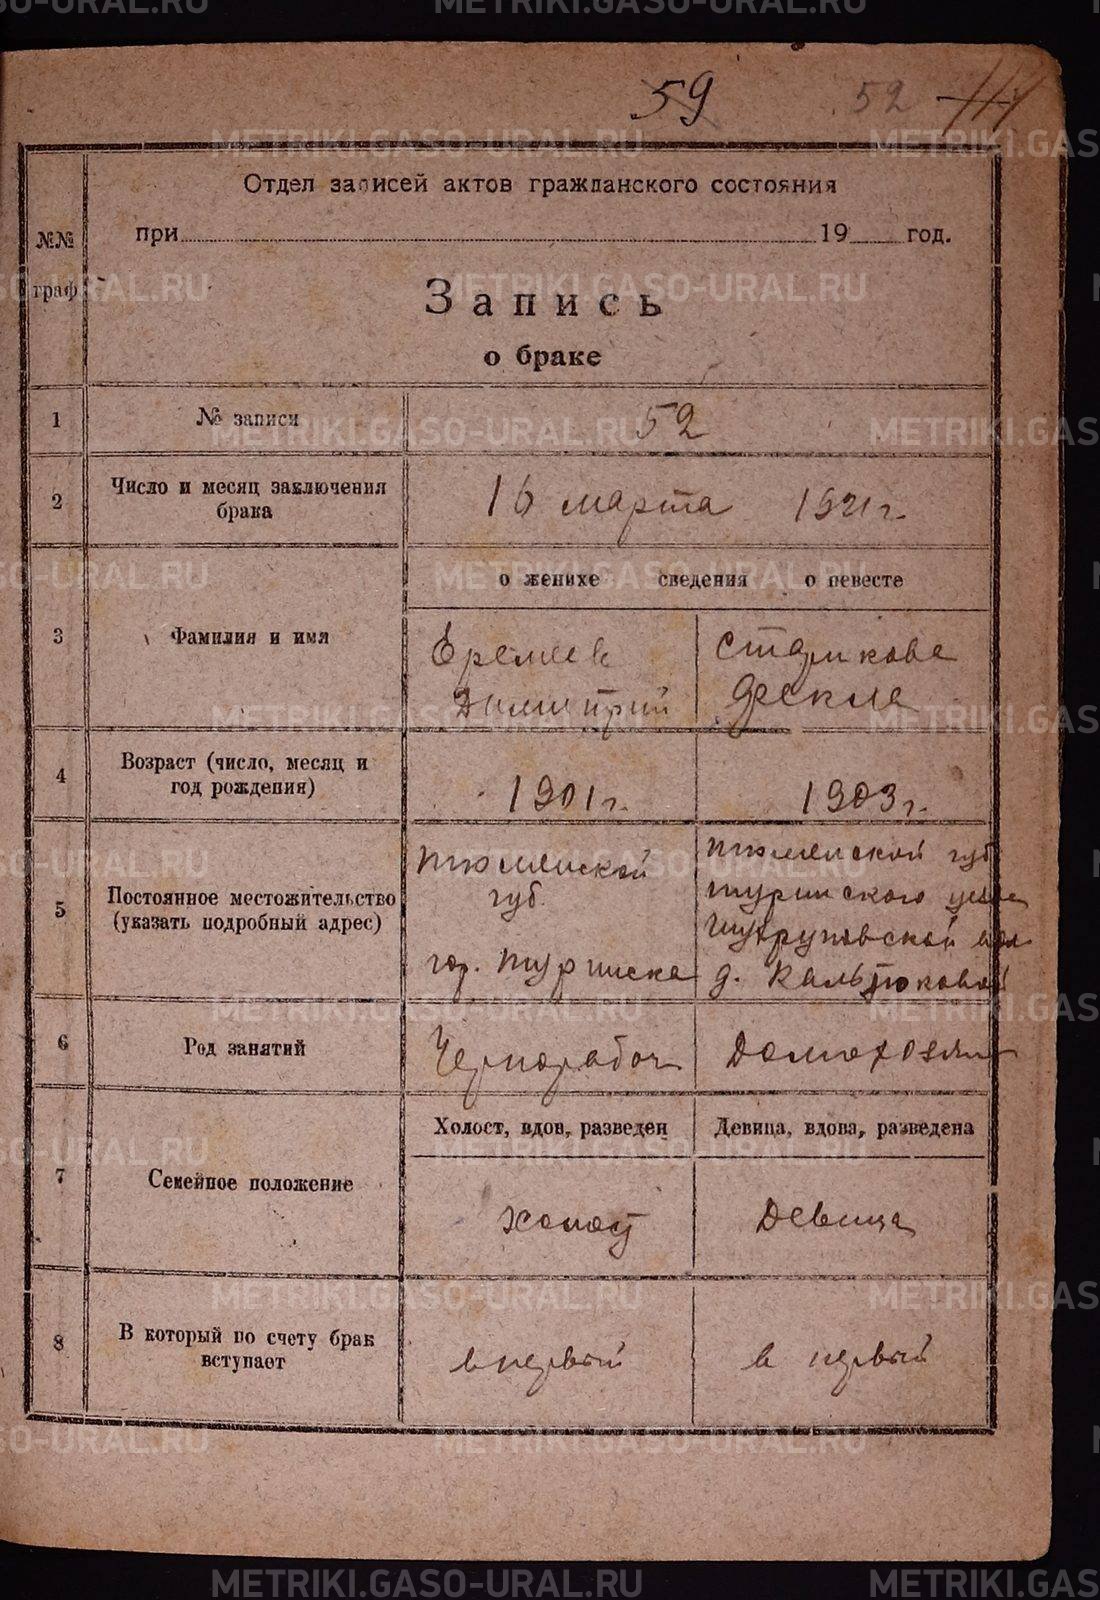 METRIKI.GASO-URAL.RU
59 52
Отдел записей актов гражданского состояния
№№ граф
при 19 год.
Запись
о браке
1 № записи 52
2 Число и месяц заключения брака 16 марта 1921 г.
о женихе сведения о невесте
3 Фамилия и имя
Еремеев Старикова
Димитрий Фекла
4 Возраст (число, месяц и год рождения) 1901 г. 1903 г.
5 Постоянное местожительство (указать подробный адрес)
Тюменской Тюменской губ
губ. Туринского уезда
гор. Туринска д. Кальтюковой
6 Род занятий Чернорабоч Домохозяй
Холост, вдов, разведен Девица, вдова, разведена
7 Семейное положение холост Девица
8 В который по счету брак вступает в первый в первый